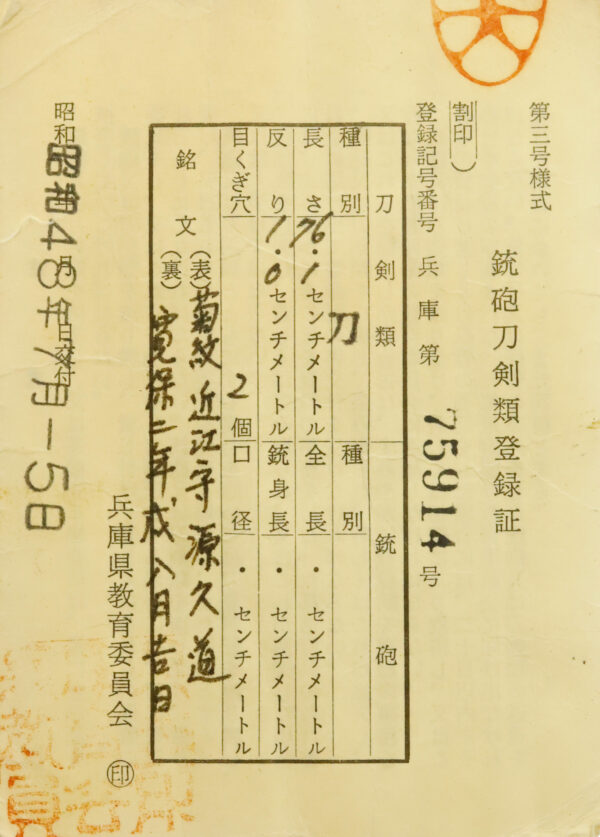 第三号様式
銃砲刀剣類登録証
割印)
登録記号番号 兵庫第 75914 号
刀剣類 銃砲
種別 刀 種別
長さ 76.1 センチメートル 全長 ・ センチメートル
反り 1.0 センチメートル 銃身長 ・ センチメートル
目くぎ穴 2 個 口径 ・ センチメートル
銘文 (表) 菊紋 近江守源久道
(裏) 寛保二年戌八月吉日
兵庫県教育委員会 ㊞
昭和 月 日交付
昭和48年7月-5日